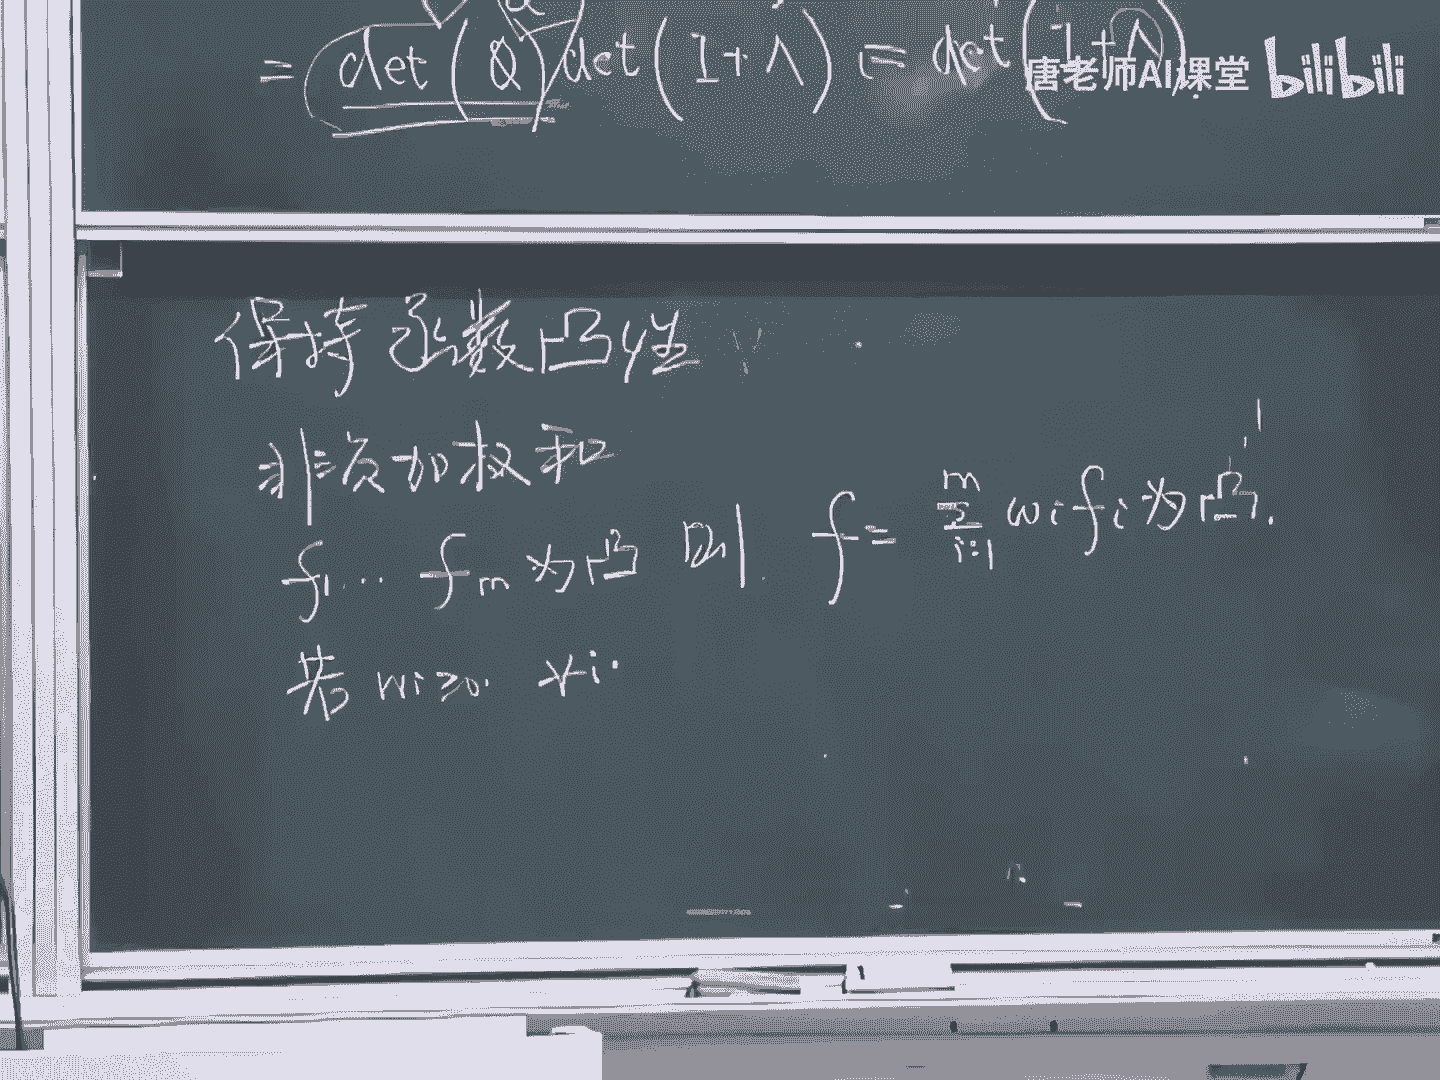 = det(Q) det(I+Λ) = det(I+Λ)
唐老师AI课堂 bilibili
保持函数凸性
非负加权和
f₁... fₘ 为凸 则 f = ∑ᵢ₌₁ᵐ wᵢfᵢ 为凸.
若 wᵢ≥0. ∀i.